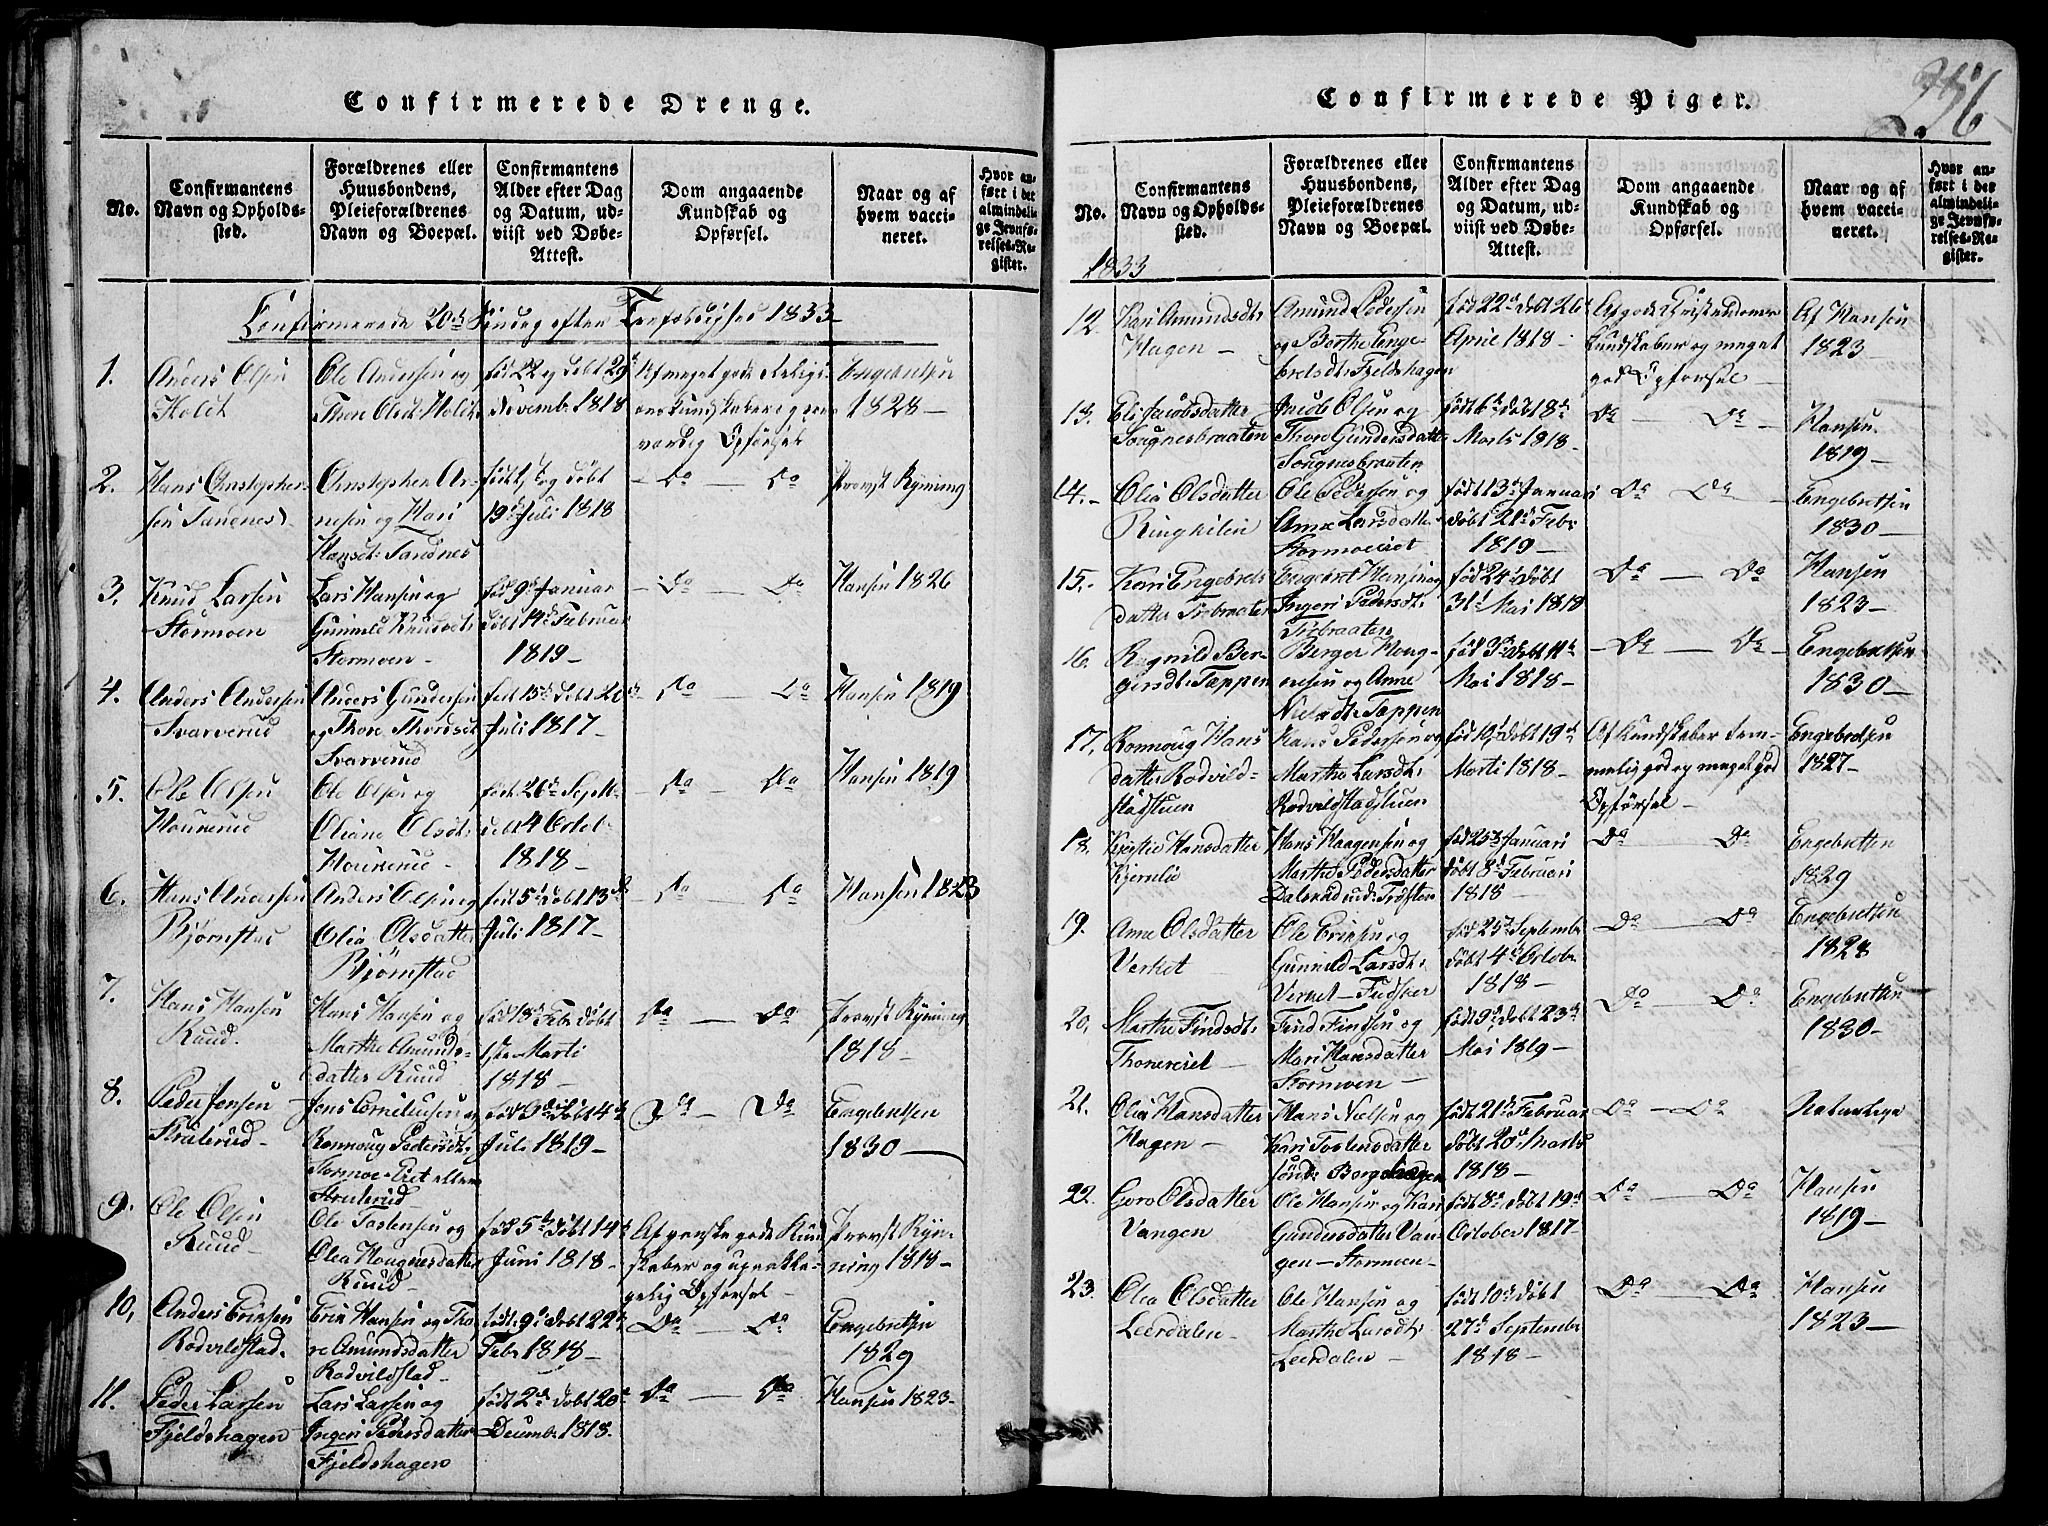 Confirmerede Drenge.
No.
Confirmantens
Navn og Opholds-
sted.
Forældrenes eller
Huusbondens,
Pleieforældrenes
Navn og Boepæl.
Confirmantens
Alder efter Dag
og Datum, ud-
viist ved Døbe-
Attest.
Dom angaaende
Kundskab og
Opførsel.
Naar og af
hvem vacci-
neret.
Hvor an-
ført i det
almindeli-
ge Jevnfø-
relses-Re-
gister.
Confirmerede 20de Søndag efter Trefoldighed 1833
1.
Anders Olsen
Holet
Ole Andersen og
Thore Olsdt: Holet
fød 22 og døbt 29d
Novembr 1818
Af meget gode Religi-
onskundskaber og
værdig Opførsel
Engebretsen
1828 —
2.
Hans Christopher-
sen Sandnes
Christopher Ar-
nesen og Kari
Hansdt: Sandnes
født og døbt
19d Juli 1818
— Do — Do
Provst Ryning
3.
Knud Larsen
Stormoen
Lars Hansen og
Gunnild Knudsdt:
Stormoen —
fød 9d Januar
døbt 14d Februar
1819 —
— Do — Do
Hansen 1826
4.
Anders Andersen
Svarverud
Anders Gundersen
og Thore Thoresdt:
Svarverud
fød 15d døbt 20d
Juli 1817 —
Do — Do
Hansen 1819
5.
Ole Olsen
Houkerud
Ole Olsen og
Oliane Olsdt:
Houkerud —
født 26d Septr
døbt 4 Octob
1818 —
— Do — Do
Hansen 1819
6.
Hans Andersen
Bjørnstad
Anders Olsen og
Olia Olsdatter
Bjørnstad
fød 5d døbt 13d
Juli 1817 —
— Do — Do
Hansen 1823
7.
Hans Hansen
Ruud.
Hans Hansen og
Marthe Amunds-
datter Ruud
fød 18d Febr døbt
1ste Marti
1818 —
Do — Do
Provst Ryning
1818 —
8.
Peder Jensen
Strulerud —
Jens Cornelius en og
Ronnoug Pedersdt:
Stormoe-Eiet eller
Strulerud
fød 9d døbt 4d
Juli 1819 —
Do — Do
Engebretsen
1830 —
9.
Ole Olsen
Ruud —
Ole Tostensen og
Olea Hougnesdatter
Ruud —
fød 5d døbt 14d
Juni 1818 —
Af ganske gode Kund
skaber og upaakla-
gelig Opførsel —
Provst Ryn-
ning 1818 —
10.
Anders Erichsen
Rodvildstad.
Erik Hansen og Tho-
re Amundsdatter
Rodvildstad —
født 9d døbt 22d
Febr 1818 —
Do — Do
Engebretsen
1829
11.
Peder Larsen
Fjeldshagen
Lars Larsen og
Ingeri Pedersdatter
Fjeldshagen
født 2d døbt 20d
Decembr 1818.
Do — Do
Hansen 1823 —
Confirmerede Piger.
256
No.
1833
Confirmantens
Navn og Opholds-
sted.
Forældrenes eller
Huusbondens,
Pleieforældrenes
Navn og Boepæl.
Confirmantens
Alder efter Dag
og Datum, ud-
viist ved Døbe-
Attest.
Dom angaaende
Kundskab og
Opførsel.
Naar og af
hvem vacci-
neret.
Hvor an-
ført i det
almindeli-
ge Jevnfø-
relses-Re-
gister.
12
Kari Amundsdt:
Hagen —
Amund Pedersen
og Berthe Enge-
bretsdt: Fjeldshagen
fød 22d døbt 26d
April 1818 —
Af gode Christendoms
Kundskaber og meget
god Opførsel —
Af Hansen
1823 —
13.
Eli Jacobsdatter
Sougnesbraaten
Jacob Olsen og
Thore Gundersdatter
Sougnesbraaten
født 6d døbt 8d
Marts 1818 —
Do — Do
Hansen.
1819 —
14. —
Olia Olsdatter
Ringhilen
Ole Pedersen og
Anne Larsdatter
Stormoeiet
født 13d Januari
døbt 21d Febr
1819 —
Do — Do
Engebretsen
1830 —
15. —
Kari Engebrets
datter
Engebret Hansen og
Ingeri Pedersdt:
fød 24d døbt
31d Mai 1818
Do — Do
Hansen
1823 —
16.
Ragnild Ber-
gersdt: Tappen
Berger Houg-
nesen og Anne
Nielsdt: Tappen
fød 3d døbt 11d
Mai 1818 —
— Do — Do
Engebretsen
1830 —
17.
Ronnoug Hans
datter Rodvild-
stadstuen
Hans Pedersen og
Marthe Larsdt:
Rodvildstadstuen
fød 10d døbt 19d
Marti 1818 —
Af Kundskaber tem-
melig god og meget god
Opførsel —
Engebretsen
1827 —
18.
Kjestie Hansdatter
Kjernlie
Hans Haagensen og
Marthe Pedersdatter
Dalsrud
fød 25d Januari
døbt 8d Februari
1818 —
Do — Do
Engebretsen
1829
19.
Anne Olsdatter
Verket
Ole Eriksen og
Gunnild Larsdt:
Verket —
fød 25d Septembr
døbt 4d Octobr
1818 —
Do — Do
Engebretsen
1828
20.
Marthe Findsdt:
Thoneeiet
Find Findsen og
Mari Hansdatter
Stormoen —
født 9d døbt 23d
Mai 1819 —
Do — Do
Engebretsen
1830 —
21.
Olia Hansdatter
Hagen —
Hans Nielsen og
Kari Tostensdatter
født 21d Februar
døbt 20d Marts
1818 —
Do — Do
Naturlige
22.
Goro Olsdatter
Vangen
Ole Hansen og Kari
Gundersdatter Van-
gen — Stormoen —
født 8d døbt 19d
October 1817 —
Do — Do
Hansen
1819 —
23.
Olea Olsdatter
Leerdalen —
Ole Hansen og
Marthe Larsdt:
Leerdalen —
født 10d døbt
27d Septembr
1818 —
Do — Do
Hansen
1823 —